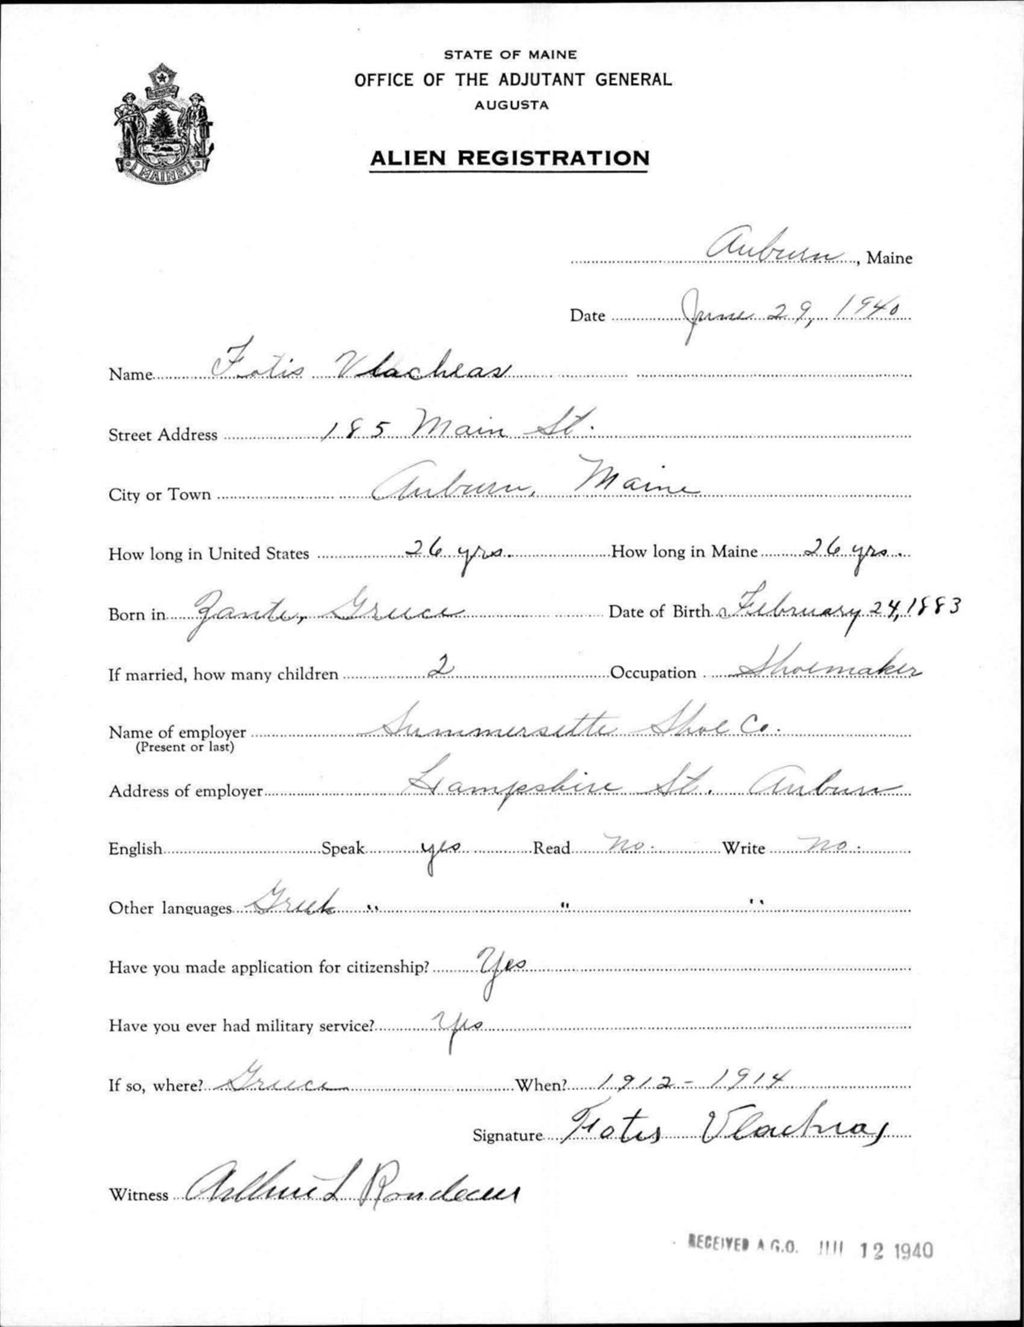 STATE OF MAINE
OFFICE OF THE ADJUTANT GENERAL
AUGUSTA
ALIEN REGISTRATION
MAINE
Auburn, Maine
Date June 29, 1940
Name Fotis Vlacheas
Street Address 185 Main St.
City or Town Auburn, Maine
How long in United States 26 yrs. How long in Maine 26 yrs.
Born in Zante, Greece Date of Birth February 24, 1883
If married, how many children 2 Occupation Shoemaker
Name of employer Summersette Shoe Co.
(Present or last)
Address of employer Hampshire St. Auburn
English Speak yes Read no. Write no.
Other languages Greek " " "
Have you made application for citizenship? Yes
Have you ever had military service? Yes
If so, where? Greece When? 1912-1914
Signature Fotis
Witness L Rondeau
RECEIVED A.G.O. 12 1940